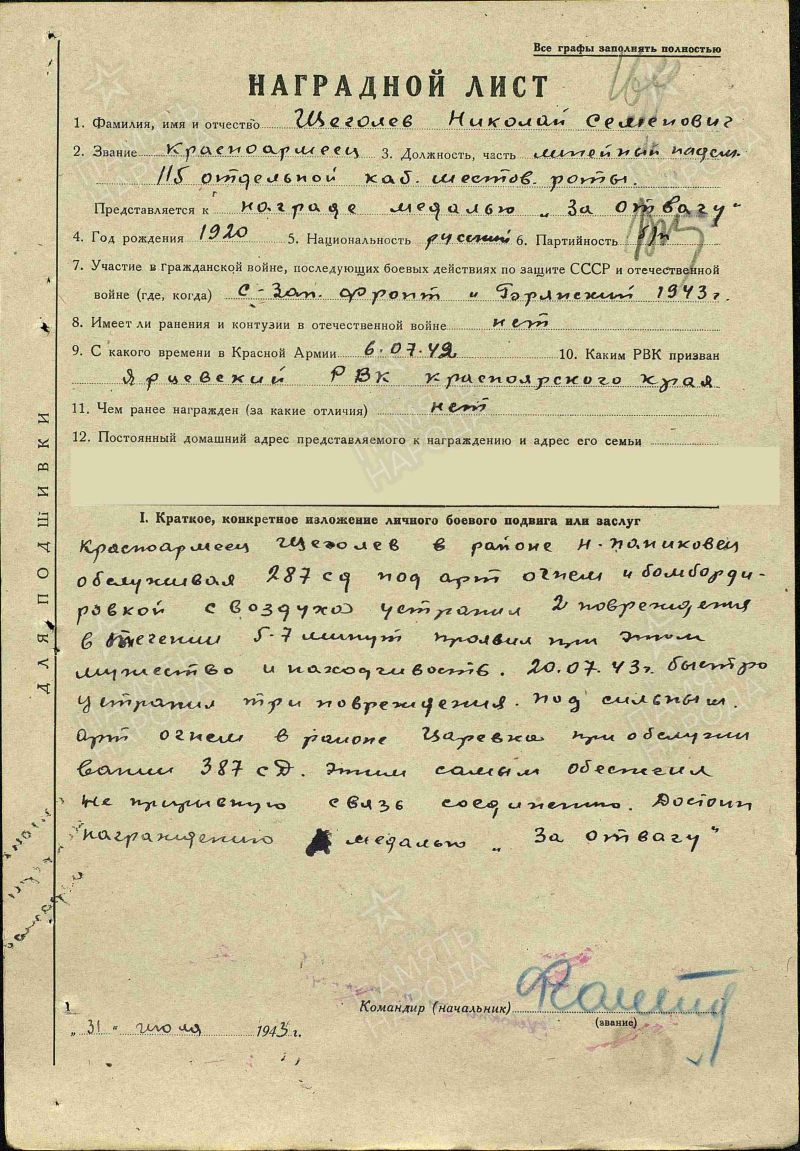 Все графы заполнять полностью
НАГРАДНОЙ ЛИСТ
1. Фамилия, имя и отчество Щеголев Николай Семенович
2. Звание Красноармеец 3. Должность, часть линейный надсм.
115 отдельной каб. шестов. роты.
Представляется к награде медалью „За отвагу"
4. Год рождения 1920 5. Национальность русский 6. Партийность б/п
7. Участие в гражданской войне, последующих боевых действиях по защите СССР и отечественной
войне (где, когда) С-Зап. Фронт и Брянский 1943г.
8. Имеет ли ранения и контузии в отечественной войне нет
9. С какого времени в Красной Армии 6.07.42 10. Каким РВК призван
Ярцевский РВК Красноярского края
11. Чем ранее награжден (за какие отличия) нет
12. Постоянный домашний адрес представляемого к награждению и адрес его семьи
I. Краткое, конкретное изложение личного боевого подвига или заслуг
Красноармеец Щеголев в районе Н-Паниковец
обслуживая 287 сд под арт огнем и бомборди-
ровкой с воздуха устранил 2 повреждения
в течении 5-7 минут проявил при этом
мужество и находчивость. 20.07.43г. быстро
устранил три повреждения. под сильным.
арт огнем в районе Царевка при обслужи
вании 387 сД. этим самым обеспечил
не прирывную связь соединению. Достоин
награждению медалью „За отвагу"
ДЛЯ ПОДШИВКИ
Командир (начальник)
(звание)
„31" июля 1943г.
ПАМЯТЬ НАРОДА